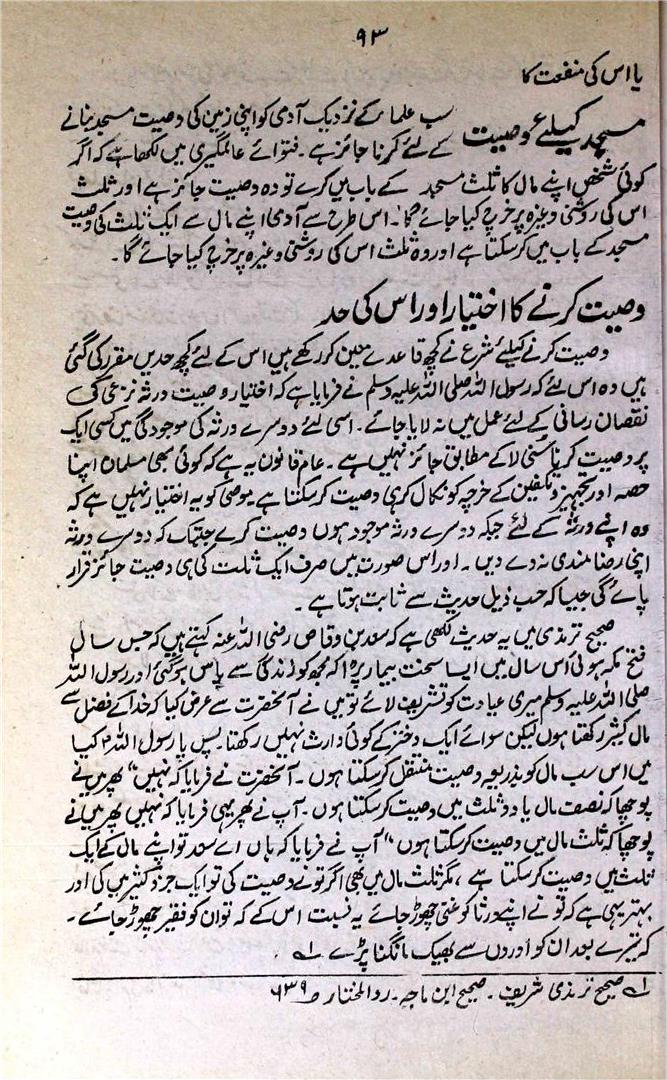 ۹۳
یا اس کی منفعت کا
مسجد کیلئے وصیت سب علماء کے نزدیک آدمی کو اپنی زمین کی وصیت مسجد بنانے
کے لئے کرنا جائز ہے۔ فتوائے عالمگیری میں لکھا ہے کہ اگر
کوئی شخص اپنے مال کا ثلث مسجد کے باب میں کرے تو وہ وصیت جائز ہے اور ثلث
اس کی روشنی وغیرہ پر خرچ کیا جائے گا۔ اس طرح سے آدمی اپنے مال سے ایک ثلث کی وصیت
مسجد کے باب میں کر سکتا ہے اور وہ ثلث اس کی روشنی وغیرہ پر خرچ کیا جائے گا۔
وصیت کرنے کا اختیار اور اس کی حد
وصیت کرنے کیلئے شرع نے کچھ قاعدے معین کر رکھے ہیں اس کے لئے کچھ حدیں مقرر کی گئی
ہیں وہ اس لئے کہ رسول اللہ صلی اللہ علیہ وسلم نے فرمایا ہے کہ اختیار وصیت ورثہ شرعی کی
نقصان رسانی کے لئے عمل میں نہ لایا جائے۔ اسی لئے دوسرے ورثہ کی موجودگی میں کسی ایک
پر وصیت کرنا سُنی لا کے مطابق جائز نہیں ہے۔ عام قانون یہ ہے کہ کوئی بھی مسلمان اپنا
حصہ اور تجہیز و تکفین کے خرچہ کو نکال کر ہی وصیت کر سکتا ہے موصی کو یہ اختیار نہیں ہے کہ
وہ اپنے ورثہ کے لئے جبکہ دوسرے ورثہ موجود ہوں وصیت کرے جبتک کہ دوسرے ورثہ
اپنی رضا مندی نہ دے دیں۔ اور اس صورت میں صرف ایک ثلث کی ہی وصیت جائز قرار
پائے گی جیسا کہ حسب ذیل حدیث سے ثابت ہوتا ہے۔
صحیح ترمذی میں یہ حدیث لکھی ہے کہ سعد بن وقاص رضی اللہ عنہ کہتے ہیں کہ جس سال
فتح مکہ ہوئی اُس سال میں ایسا سخت بیمار پڑا کہ مجھ کو زندگی سے یاس ہو گئی اور رسول اللہ
صلی اللہ علیہ وسلم میری عیادت کو تشریف لائے تو میں نے آنحضرت سے عرض کیا کہ خدا کے فضل سے
مال کثیر رکھتا ہوں لیکن سوائے ایک دختر کے کوئی وارث نہیں رکھتا۔ پس یا رسول اللہ کیا
میں اس سب مال کو بذریعہ وصیت منتقل کر سکتا ہوں۔ آنحضرت نے فرمایا کہ نہیں“ پھر میں نے
پوچھا کہ نصف مال یا دو ثلث میں وصیت کر سکتا ہوں۔ آپ نے پھر یہی فرمایا کہ نہیں پھر میں نے
پوچھا کہ ثلث مال میں وصیت کر سکتا ہوں“ آپ نے فرمایا کہ ہاں اے سعد تو اپنے مال کے ایک
ثلث میں وصیت کر سکتا ہے، مگر ثلث مال میں بھی اگر تو نے وصیت کی تو ایک جزو کثیر میں کی اور
بہتر یہی ہے کہ تو نے اپنے ورثا کو غنی چھوڑ جائے بہ نسبت اس کے کہ تو ان کو فقیر چھوڑ جائے۔
کہ تیرے بعد ان کو اوروں سے بھیک مانگنا پڑے ۔ ۱ے
۱ے صحیح ترمذی شریف۔ صحیح ابن ماجہ۔ ردالمختار ص ۶۳۹